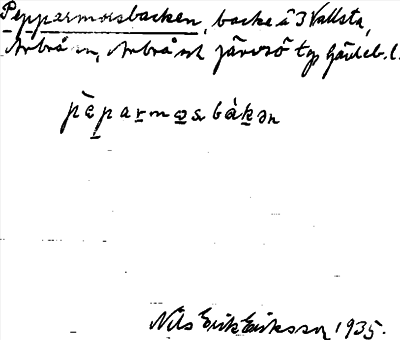 Pepparmorsbacken, backe å 3 Vallsta,
Arbrå sn, Arbrå och Järvsö tg Gävleb. l.
pæparmosbàkən
Nils Erik Eriksson 1935.